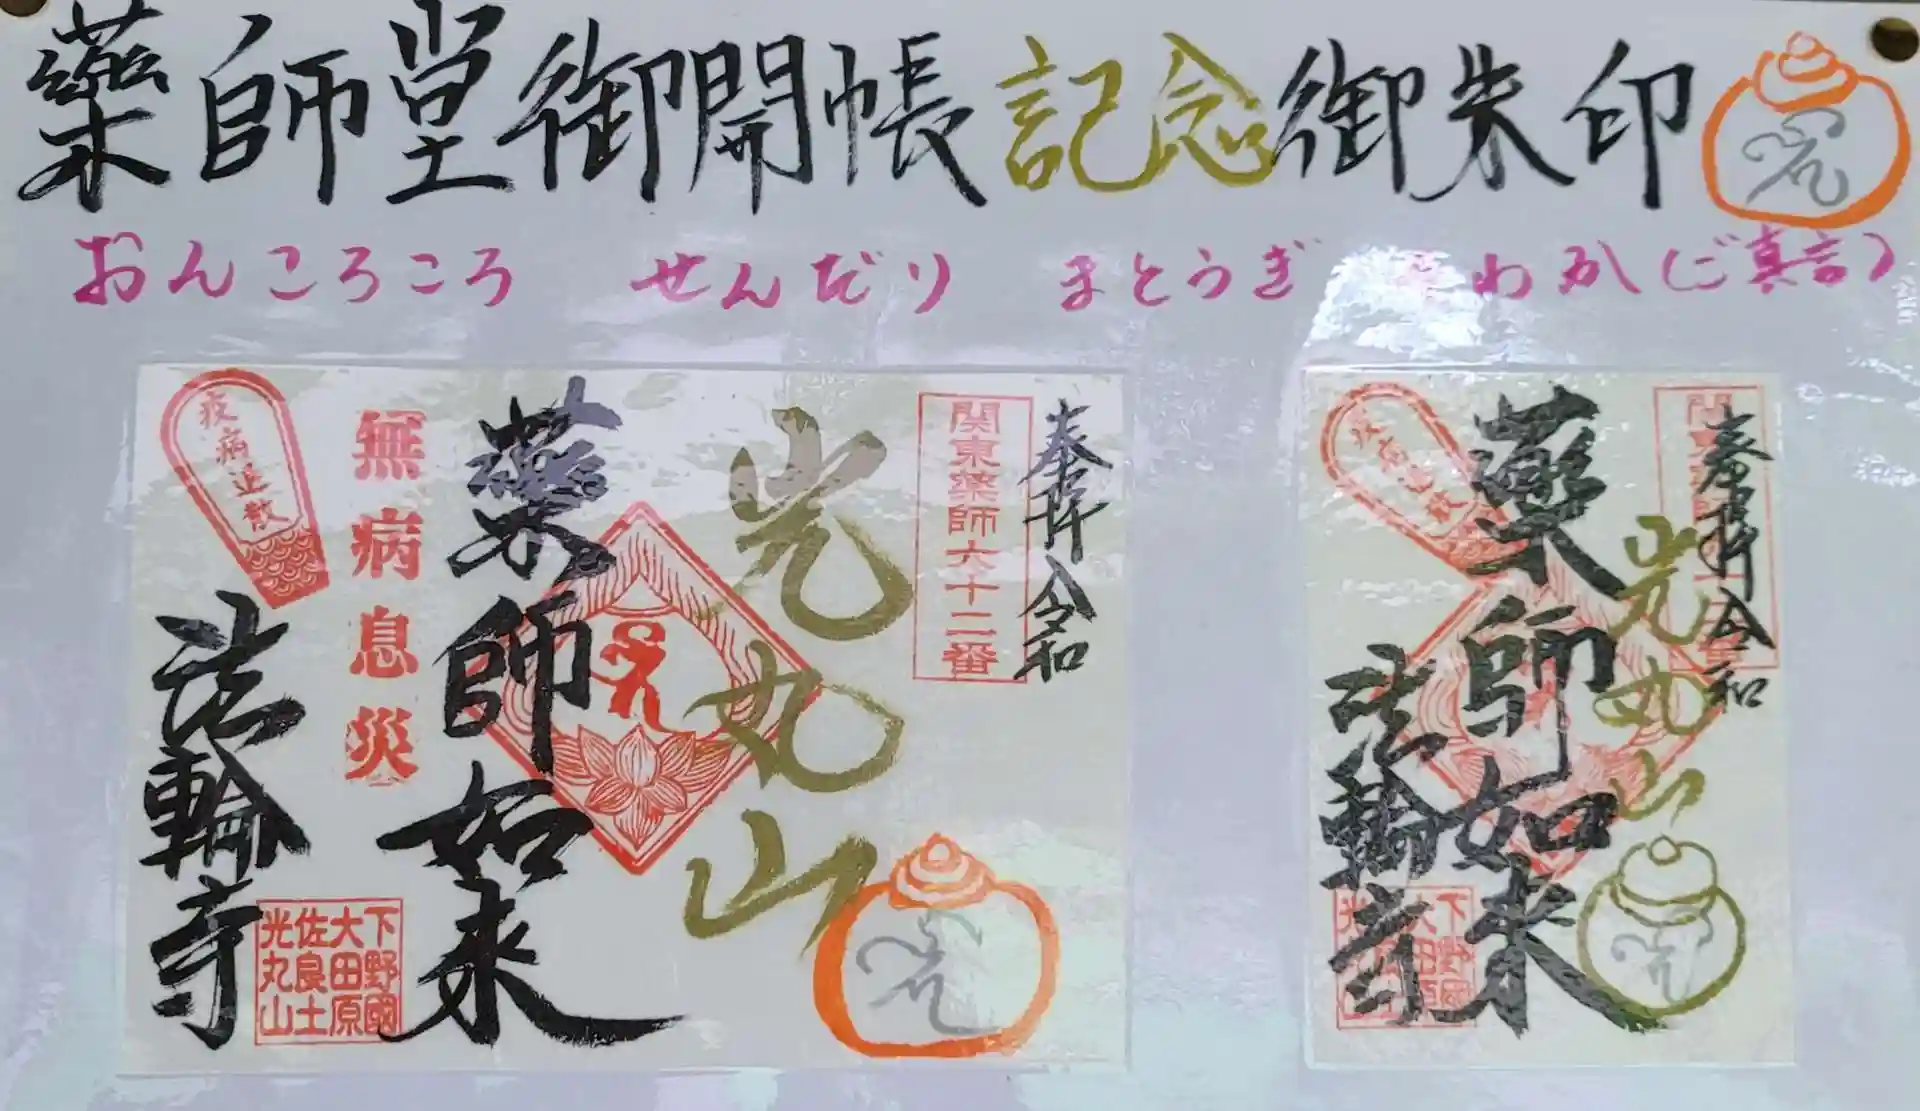 藥師堂御開帳記念御朱印
おんころころ せんだり まとうぎ そわか(ご真言)
奉拝 令和
関東薬師六十二番
光丸山
藥師如来
無病息災
疫病退散
法輪寺
下野國
大田原
佐良土
光丸山
奉拝 令和
光丸山
藥師如来
疫病退散
法輪寺